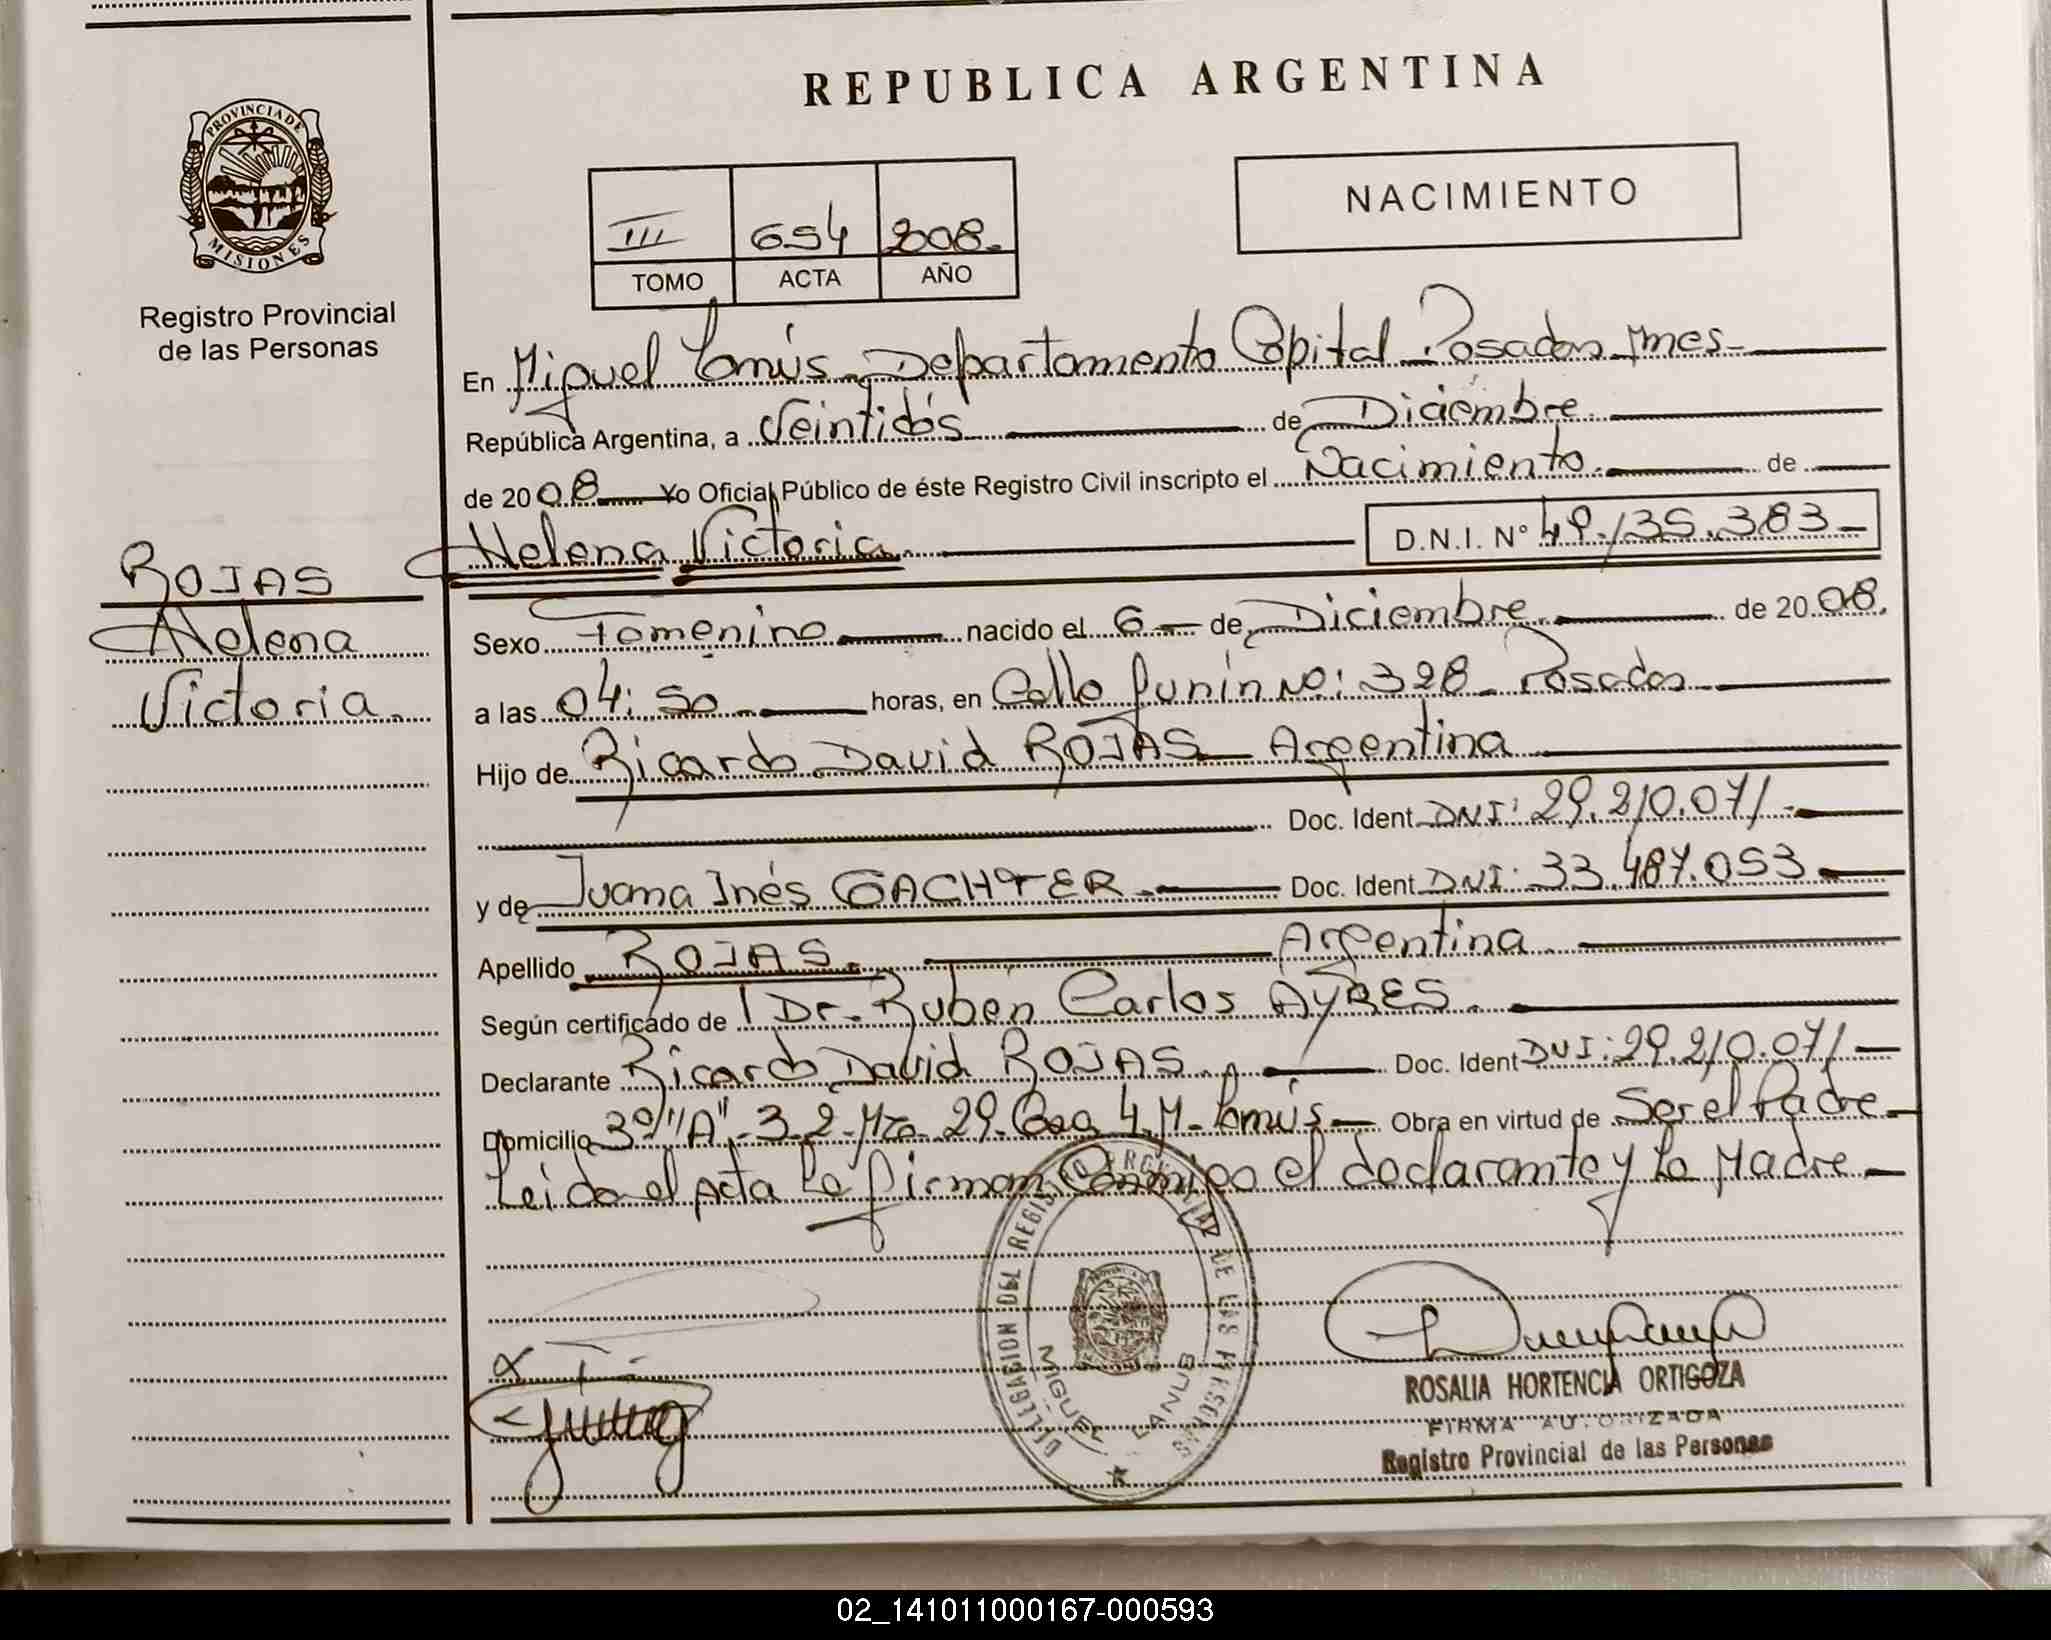 REPUBLICA ARGENTINA
PROVINCIA DE MISIONES
Registro Provincial
de las Personas
NACIMIENTO
III 654 2008.
TOMO ACTA AÑO
En Miguel Lanús, Departamento Capital Posadas Mnes
República Argentina, a Veintidós de Diciembre
de 2008 Yo Oficial Público de éste Registro Civil inscripto el Nacimiento de
Helena Victoria D.N.I. Nº 49.135.383
ROJAS
Helena
Victoria
Sexo Femenino nacido el 6 de Diciembre de 2008.
a las 04:50 horas, en Calle Junín No: 328 Posadas
Hijo de Ricardo David ROJAS Argentina
Doc. Ident DNI: 29.210.071
y de Juana Inés GACHTER Doc. Ident DNI: 33.487.053
Apellido ROJAS. Argentina
Según certificado de Dr. Ruben Carlos AYRES.
Declarante Ricardo David ROJAS. Doc. Ident DNI: 29.210.071
Domicilio 3º "A" 3.2. Mza 29. Casa 4. M. Lanús Obra en virtud de Ser el Padre
Leida el Acta la firman Conmigo el declarante y la Madre
DELEGACION DEL REGISTRO PROVINCIAL DE LAS PERSONAS
MIGUEL LANUS
ROSALIA HORTENCIA ORTIGOZA
FIRMA AUTORIZADA
Registro Provincial de las Personas
02_141011000167-000593